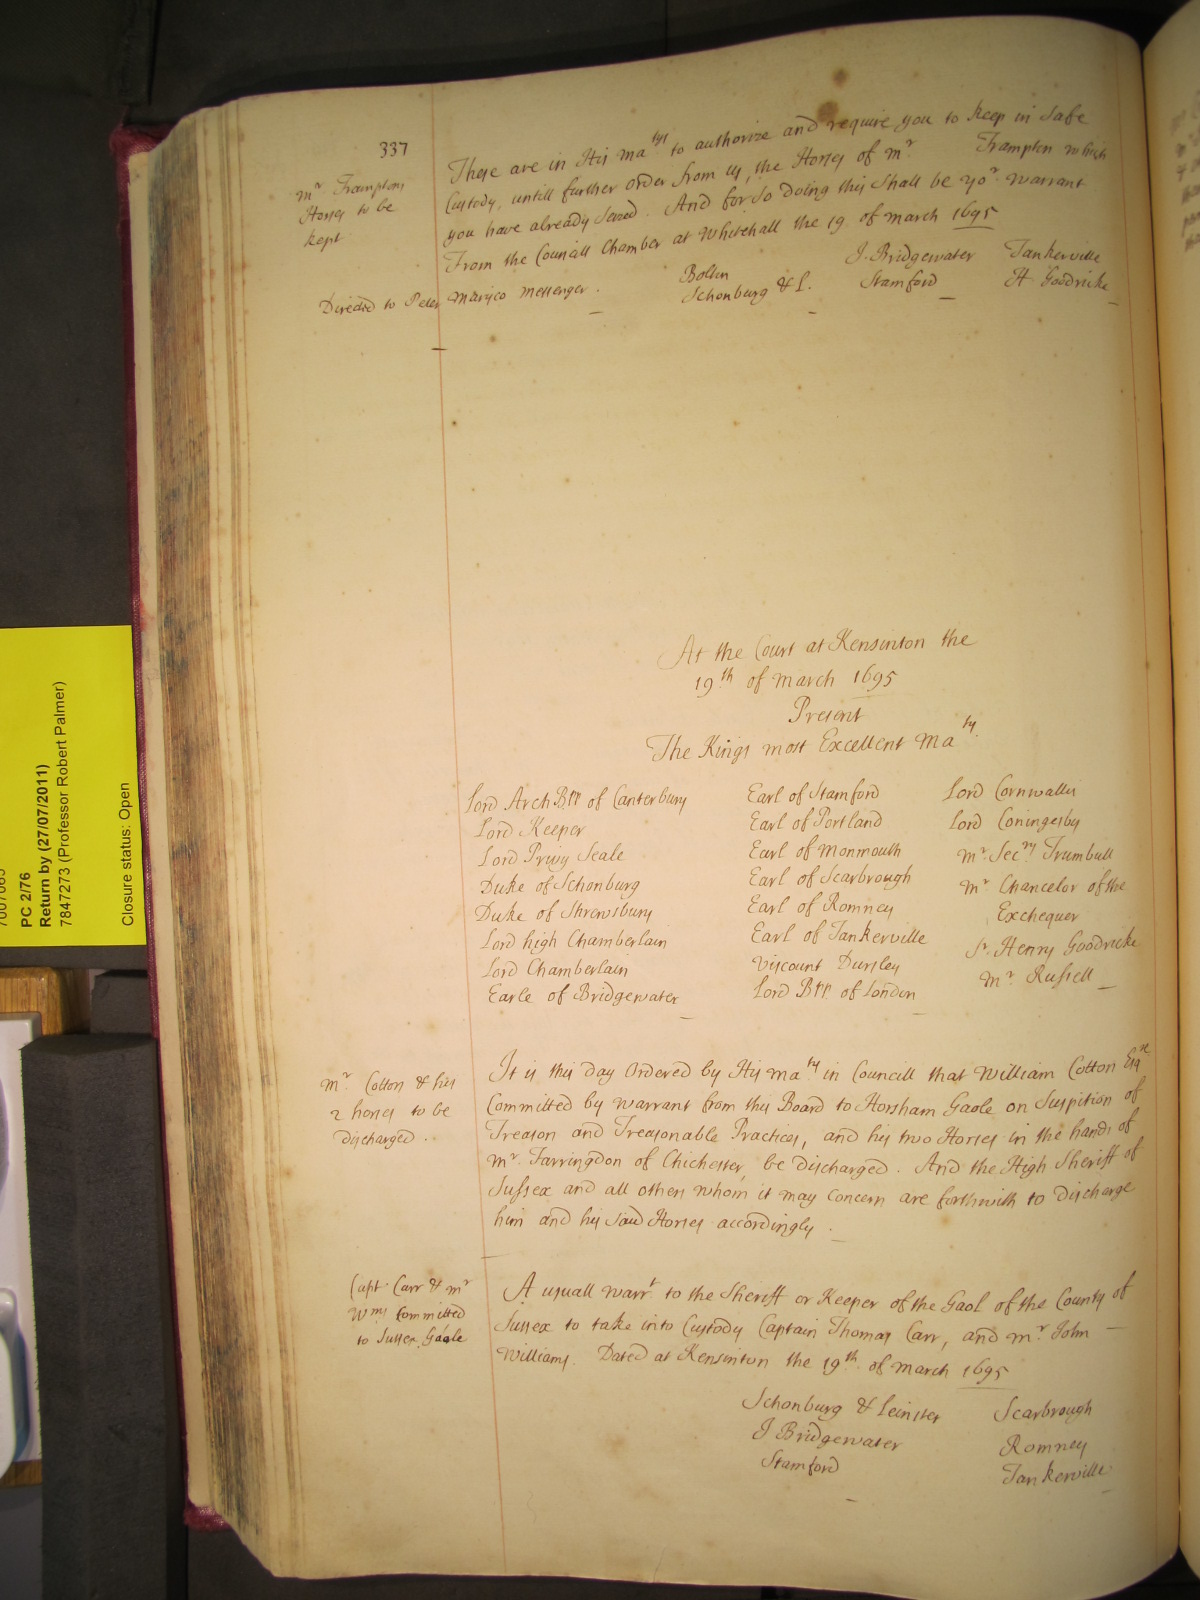 337
mr Framptons
Horses to be
kept
These are in His matys to authorize and require you to keep in safe
Custody, untill further order from us, the Horses of mr Frampton which
you have already Seized. And for so doing this shall be yor warrant
From the Councill Chamber at Whitehall the 19 of march 1695
Directed to Peter Marisco messenger.
Bolton
Schonburg & L.
J. Bridgewater
Stamford
Tankerville
H Goodricke
At the Court at Kensinton the
19th of march 1695
Present
The Kings most Excellent Maty.
Lord Arch Bpp of Canterbury
Lord Keeper
Lord Privy Seale
Duke of Schonburg
Duke of Shrewsbury
Lord high Chamberlain
Lord Chamberlain
Earle of Bridgewater
Earl of Stamford
Earl of Portland
Earl of Monmouth
Earl of Scarbrough
Earl of Romney
Earl of Tankerville
Viscount Dursley
Lord Bpp. of London
Lord Cornwallis
Lord Coningesby
mr. Secry Trumbull
mr Chancelor of the
Exchequer
Sr. Henry Goodricke
mr. Russell
mr. Cotton & his
2 horses to be
discharged.
It is this day Ordered by His maty in Councill that William Cotton Esqre
Committed by warrant from this Board to Horsham Gaole on Suspition of
Treason and Treasonable Practices, and his two Horses in the hands of
mr. Farringdon of Chichester, be discharged. And the High Sheriff of
Sussex and all others whom it may concern are forthwith to discharge
him and his said Horses accordingly.
Capt. Carr & mr
Wms Committed
to Sussex Gaole
A usuall warrt to the Sheriff or Keeper of the Gaol of the County of
Sussex to take into Custody Captain Thomas Carr, and mr John
Williams. Dated at Kensinton the 19th of march 1695
Schonburg & Leinster
J Bridgewater
Stamford
Scarbrough
Romney
Tankerville
PC 2/76
Return by (27/07/2011)
7847273 (Professor Robert Palmer)
Closure status: Open